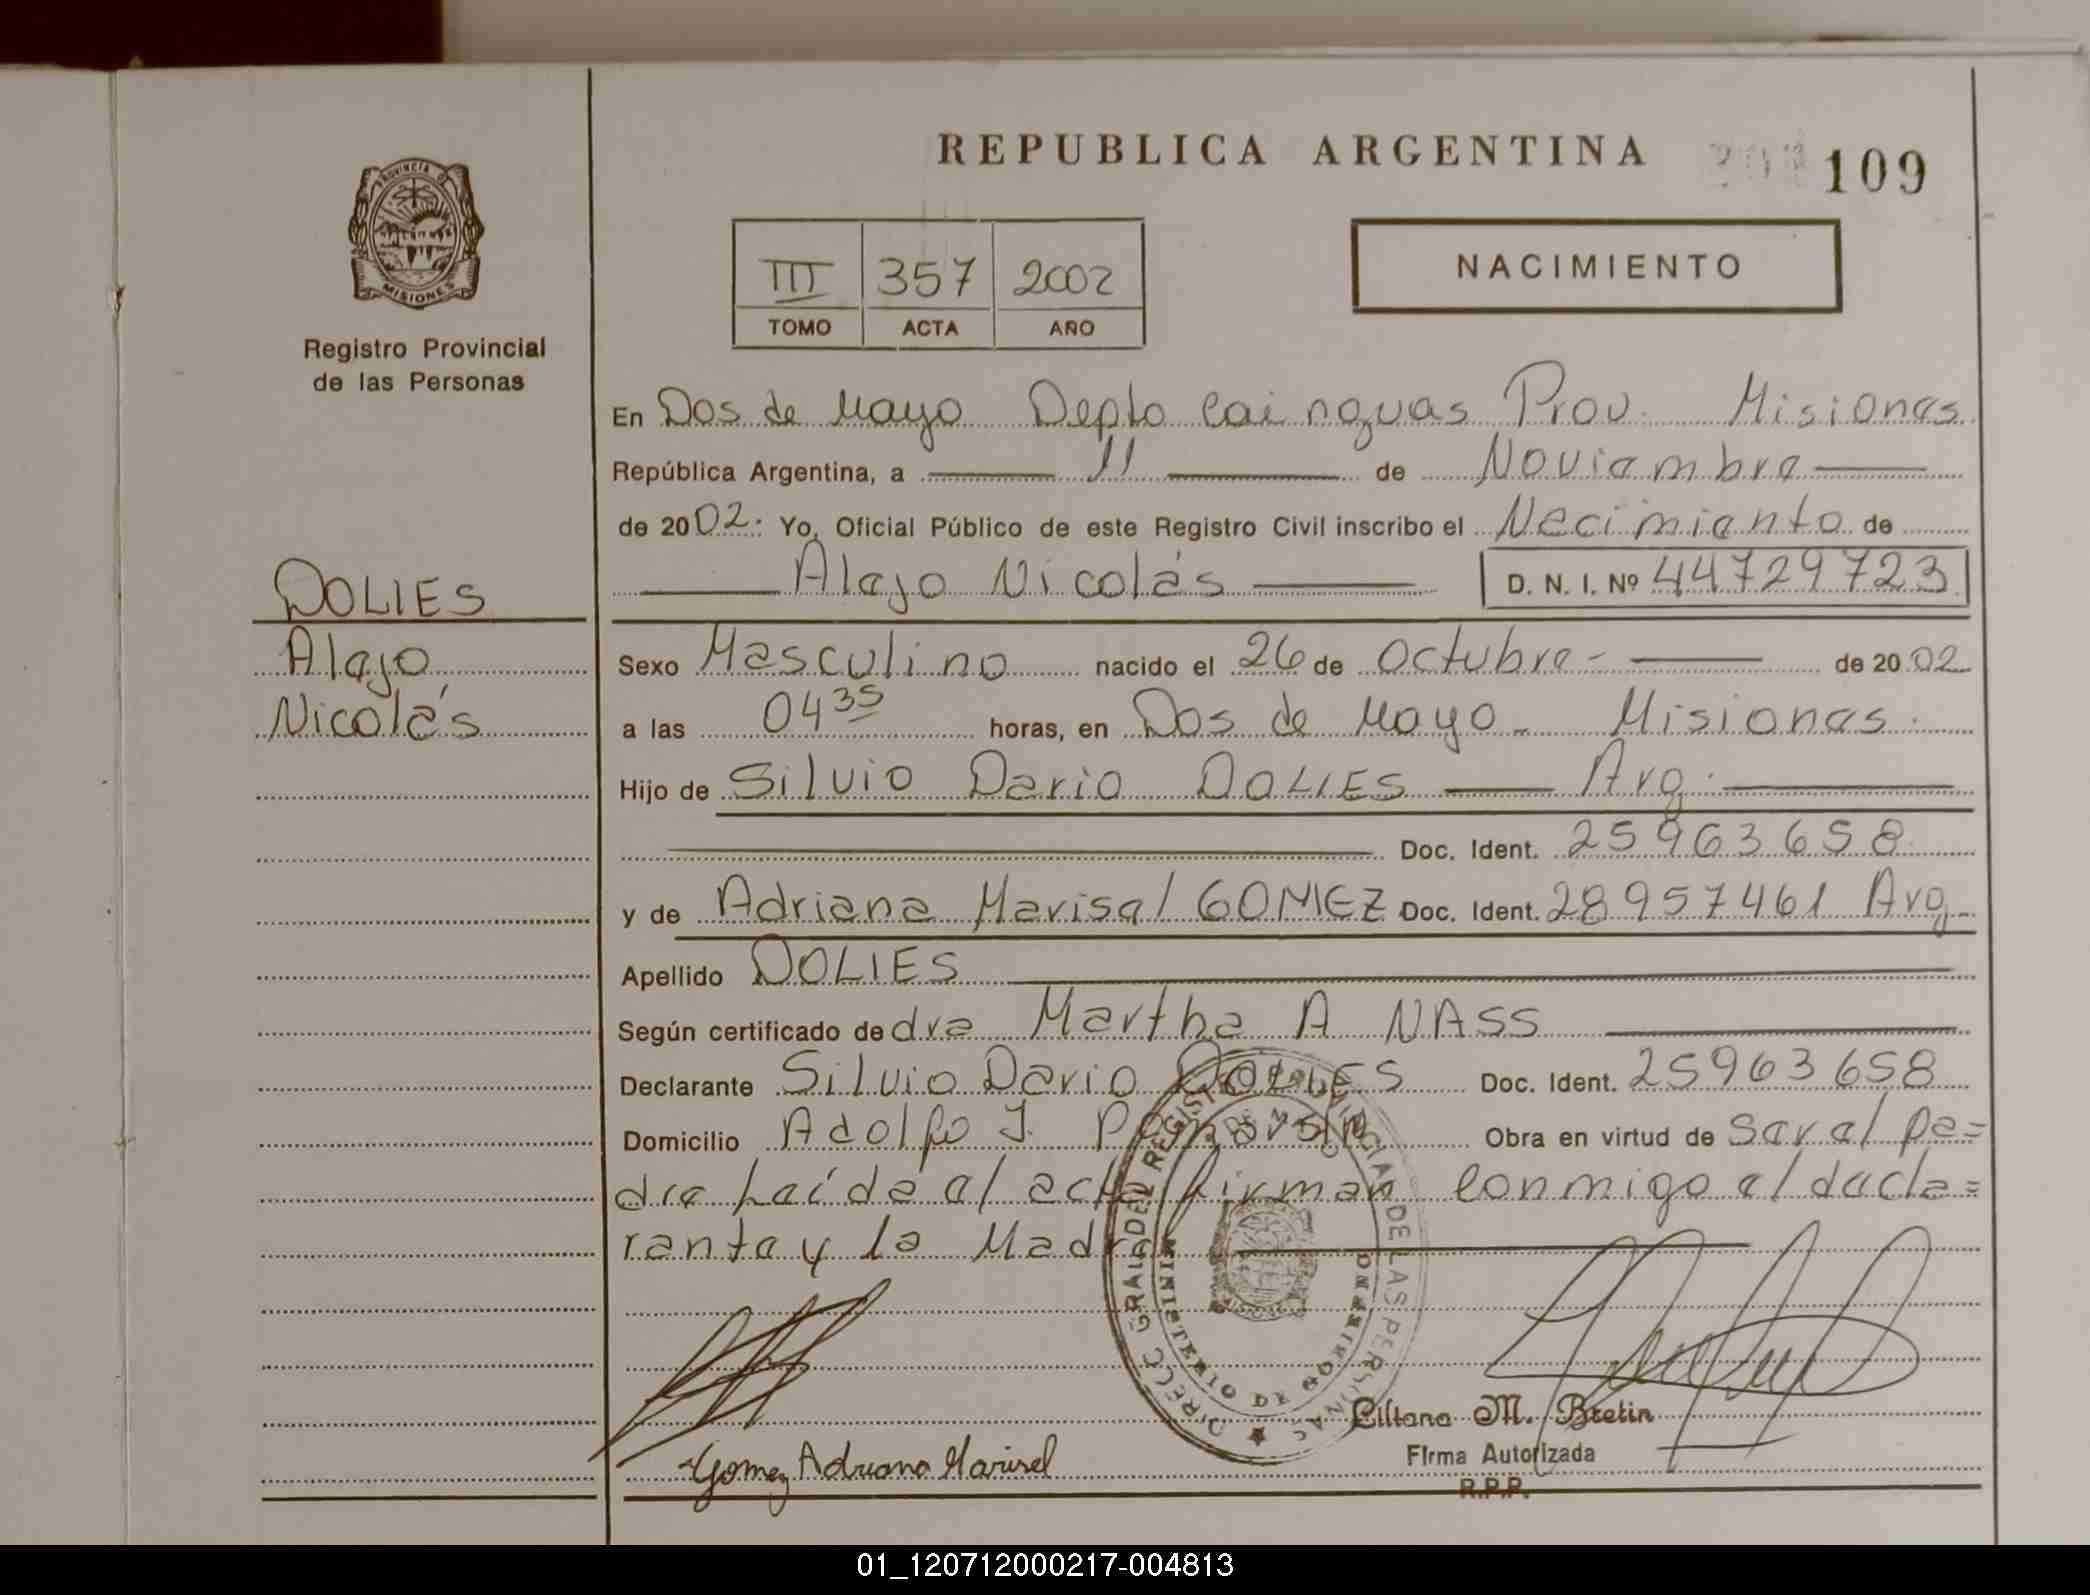 REPUBLICA ARGENTINA
109
PROVINCIA DE
MISIONES
Registro Provincial
de las Personas
III 357 2002
TOMO ACTA AÑO
NACIMIENTO
En Dos de Mayo Depto Cainguas Prov. Misiones
República Argentina, a 11 de Noviembre
de 2002. Yo, Oficial Público de este Registro Civil inscribo el Necimiento de
Alejo Nicolás D. N. I. Nº 44729723
DOLIES
Alejo
Nicolás
Sexo Masculino nacido el 26 de Octubre - de 2002
a las 04 35 horas, en Dos de Mayo - Misiones.
Hijo de Silvio Dario DOLIES Arg.
Doc. Ident. 25963658
y de Adriana Marisel GOMEZ Doc. Ident. 28957461 Arg.
Apellido DOLIES
Según certificado de dra Martha A NASS
Declarante Silvio Dario DOLIES Doc. Ident. 25963658
Domicilio Adolfo J. Obra en virtud de Ser el pa=
dre Leída el acta firman conmigo el decla=
rante y la Madre
DIRECC GRAL DEL REGISTRO PROVINCIAL DE LAS PERSONAS
MINISTERIO DE GOBIERNO
Gomez Adriana Marisel
Liliana M. Bretin
Firma Autorizada
R.P.P.
01_120712000217-004813